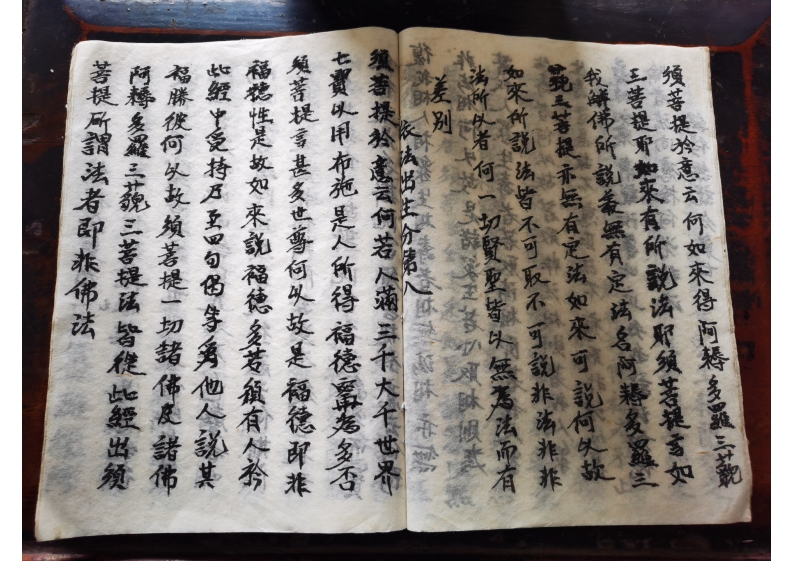 須菩提扵意云何如來得阿耨多羅三藐
三菩提耶如來有所說法耶須菩提言如
我觧佛所說義無有定法名阿耨多羅三
藐三菩提亦無有定法如來可說何以故
如來所說法皆不可取不可說非法非非
法所以者何一切賢聖皆以無為法而有
差別
依法出生分第八
須菩提於意云何若人滿三千大千世界
七寶以用布施是人所得福德寧為多否
須菩提言甚多世尊何以故是福德即非
福德性是故如來說福德多若復有人扵
此經中受持乃至四句偈等為他人說其
福勝彼何以故須菩提一切諸佛及諸佛
阿耨多羅三藐三菩提法皆從此經出須
菩提所謂法者即非佛法